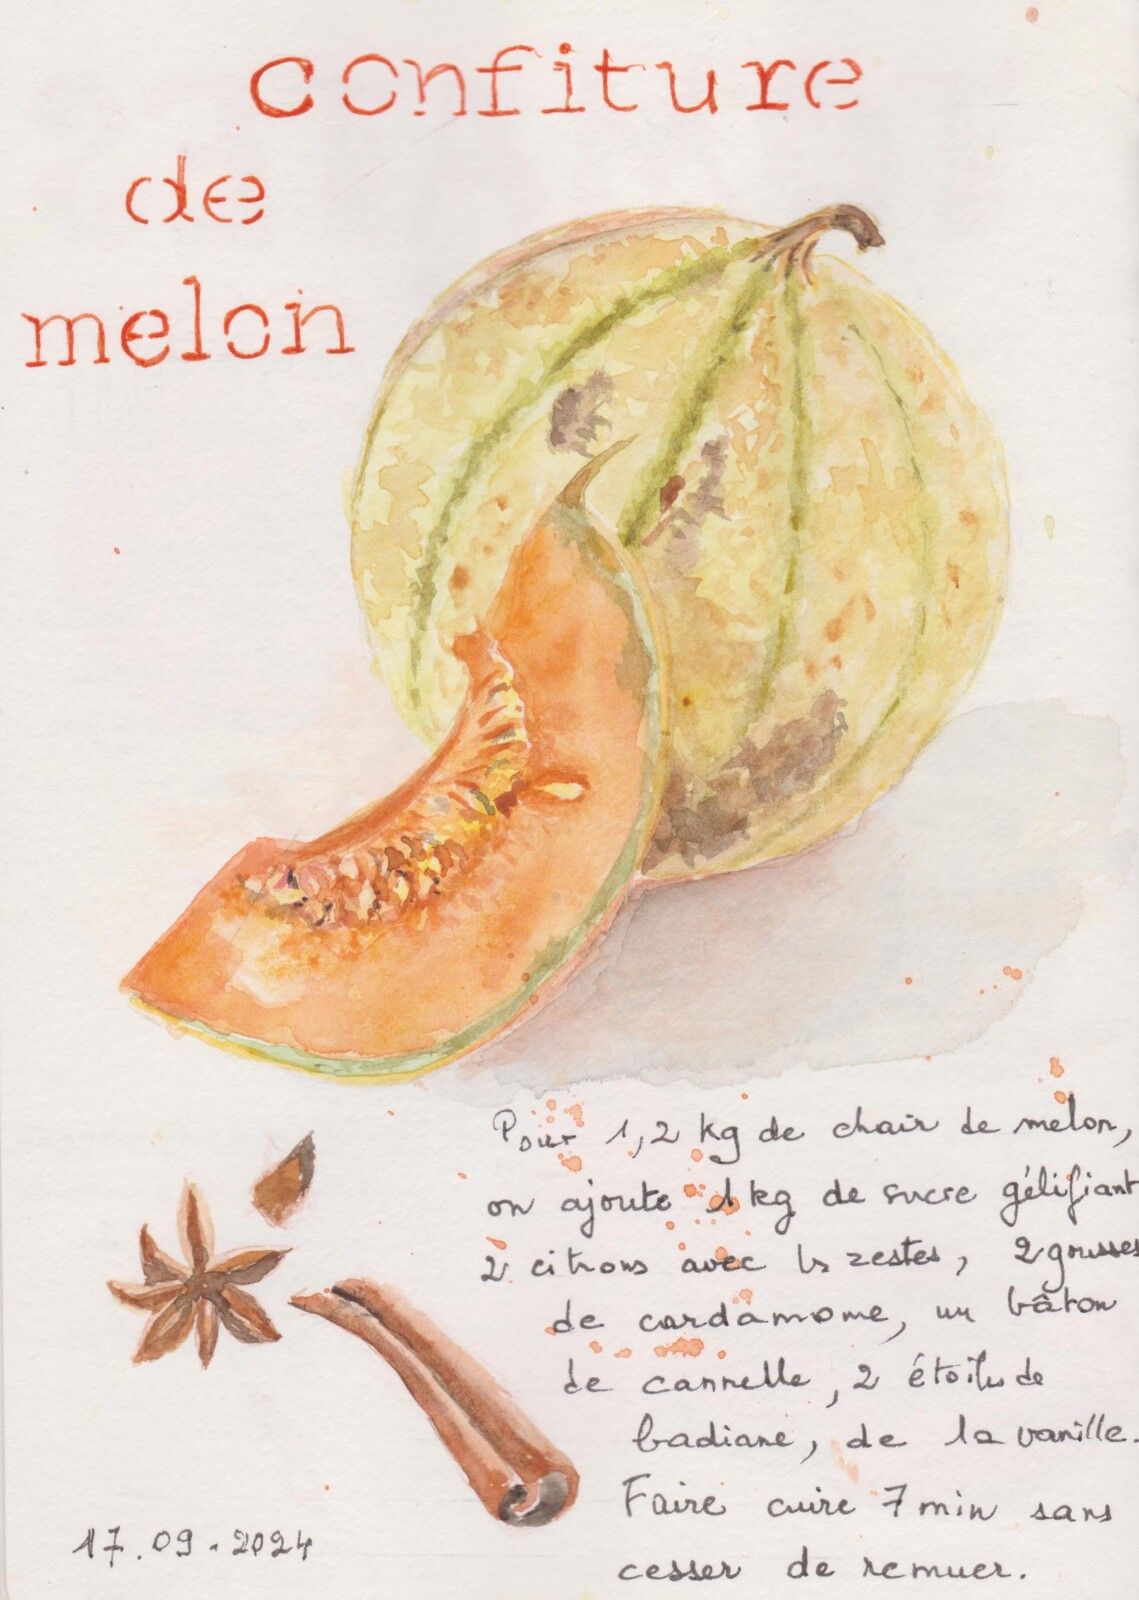 confiture
de
melon
Pour 1,2 kg de chair de melon,
on ajoute 1kg de sucre gélifiant
2 citrons avec les zestes, 2 gousses
de cardamome, un bâton
de cannelle, 2 étoiles de
badiane, de la vanille.
Faire cuire 7 min sans
cesser de remuer.
17.09.2024